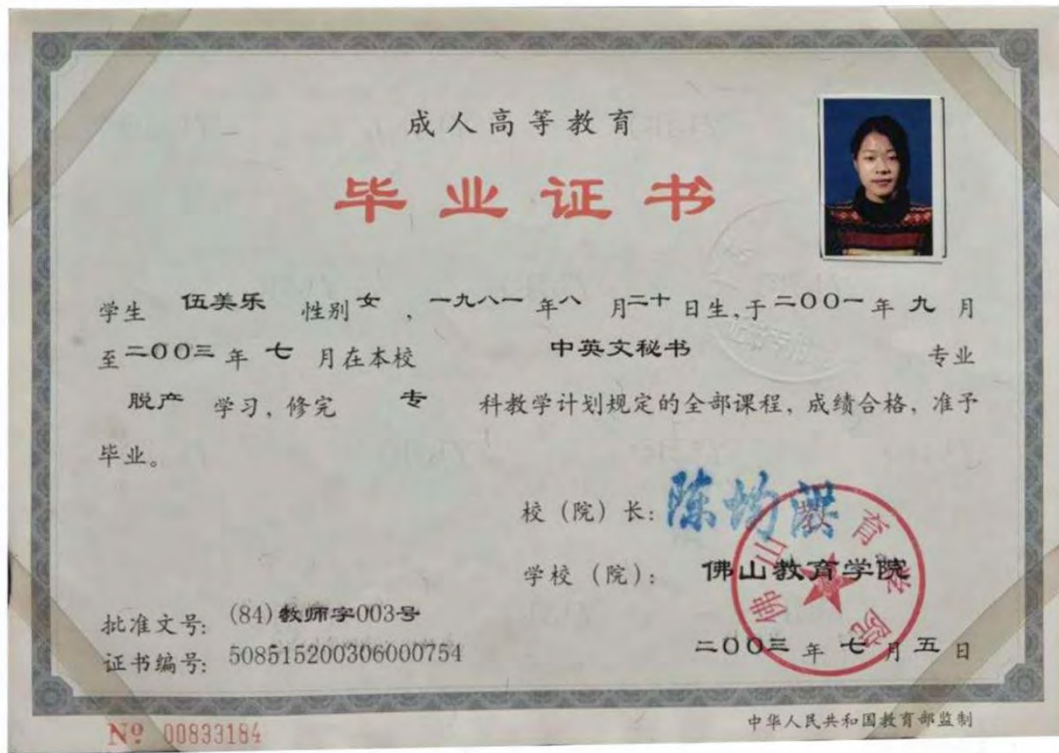 成人高等教育
毕业证书
学生 伍美乐 性别 女 ，一九八一 年 八 月 二十 日生，于 二00一 年 九 月
至 二00三 年 七 月在本校 中英文秘书 专业
脱产 学习，修完 专 科教学计划规定的全部课程，成绩合格，准予
毕业。
校（院）长：
学校（院）： 佛山教育学院
佛山教育学院
批准文号：(84)教师字003号
证书编号：508515200306000754
二00三 年 七 月 五 日
№ 00833184
中华人民共和国教育部监制